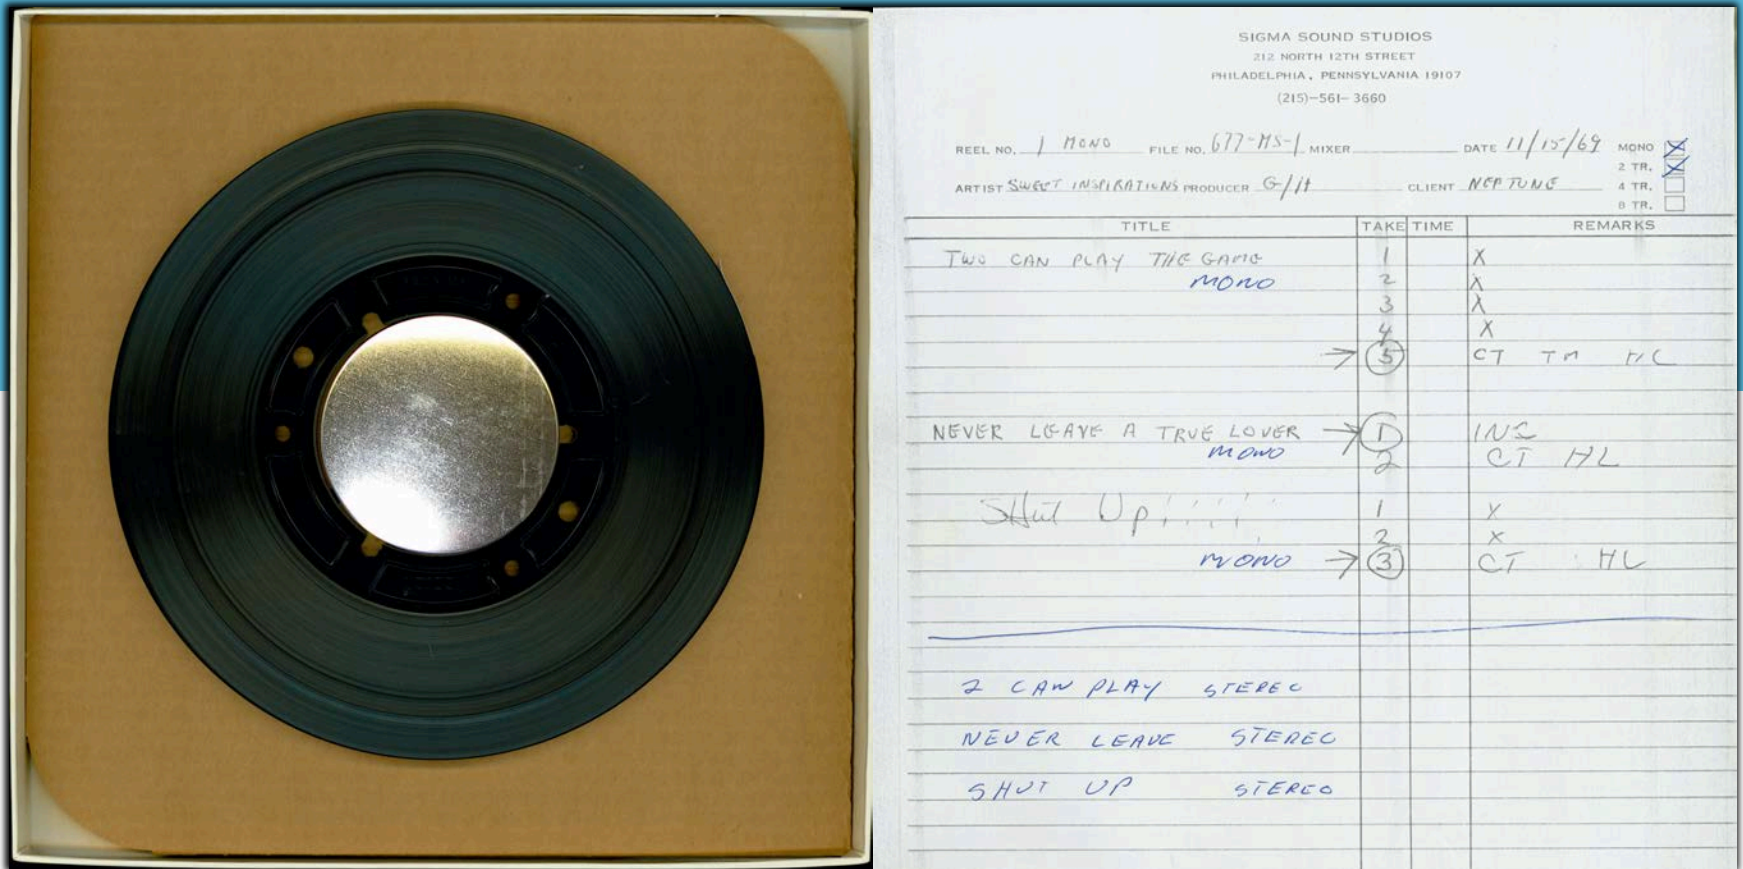 SIGMA SOUND STUDIOS
212 NORTH 12TH STREET
PHILADELPHIA, PENNSYLVANIA 19107
(215)-561-3660
REEL NO. 1 MONO FILE NO. 677-MS-1 MIXER DATE 11/15/69 MONO X
2 TR. X
ARTIST SWEET INSPIRATIONS PRODUCER G/H CLIENT NEPTUNE 4 TR.
8 TR.
TITLE TAKE TIME REMARKS
TWO CAN PLAY THE GAME 1 X
MONO 2 X
3 X
4 X
→ 5 CT TM HL
NEVER LEAVE A TRUE LOVER → 1 INS
MONO 2 CT HL
SHUT Up!!!!! 1 X
2 X
MONO → 3 CT HL
2 CAN PLAY STEREO
NEVER LEAVE STEREO
SHUT UP STEREO